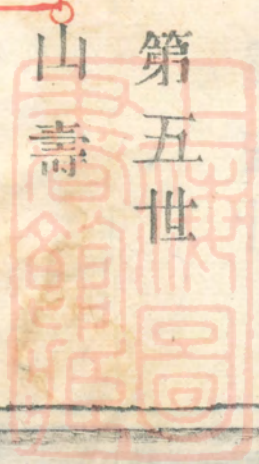 第五世
山壽